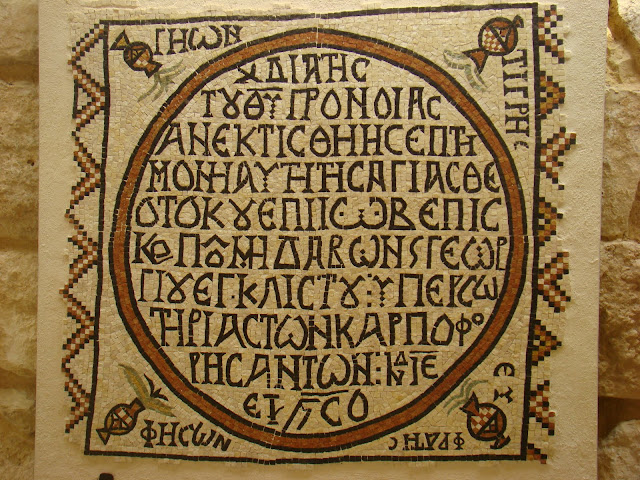 ΓΗΩΝ
ΤΙΓΡΗϹ
ΔΙΑΤΗϹ
ΤΥΘΥΠΡΟΝΟΙΑϹ
ΑΝΕΚΤΙϹΘΗΗϹΕΠΤΗ
ΜΟΝΗΑΥΤΗΤΗϹΑΓΙΑϹΘΕ
ΟΤΟΚΥΕΠΙΙΩΒΕΠΙϹ
ΚΟΠΟΥΜΗΔΑΒΩΝϚΓΕΩΡ
ΓΙΟΥΕΓΚΛΙϹΤΟΥ:ΥΠΕΡϹΩ
ΤΗΡΙΑϹΤΩΝΚΑΡΠΟΦΟ
ΡΗϹΑΝΤΩΝ:ΙΝΔΙΕ
ΦΗϹΩΝ
ΕΥ
ΦΡΑΤΗϹ